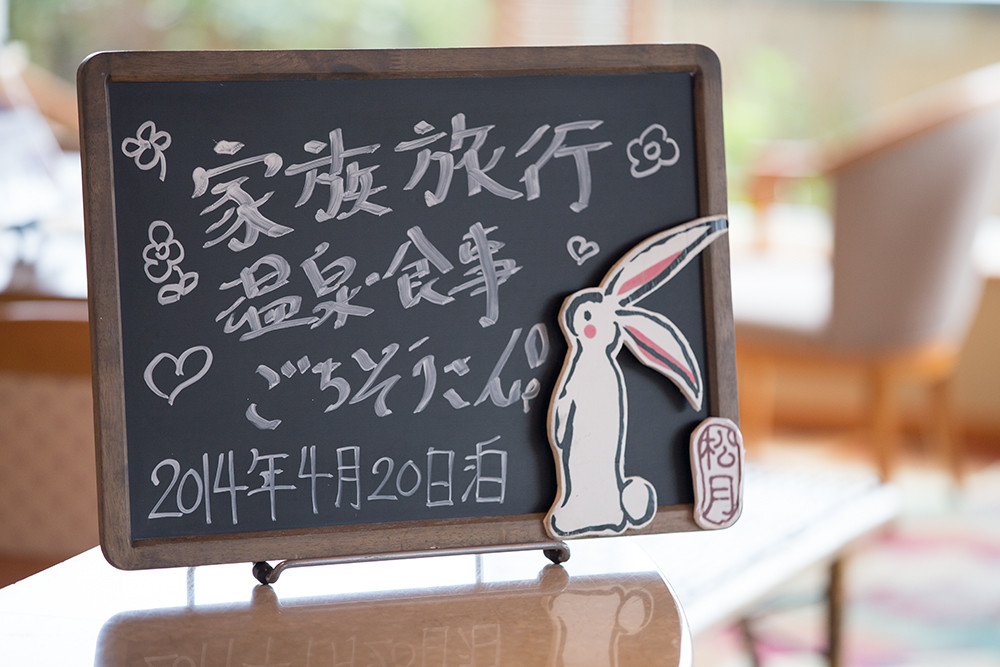 家族旅行
温泉・食事
ごちそうさん!!
2014年4月20日泊
松月